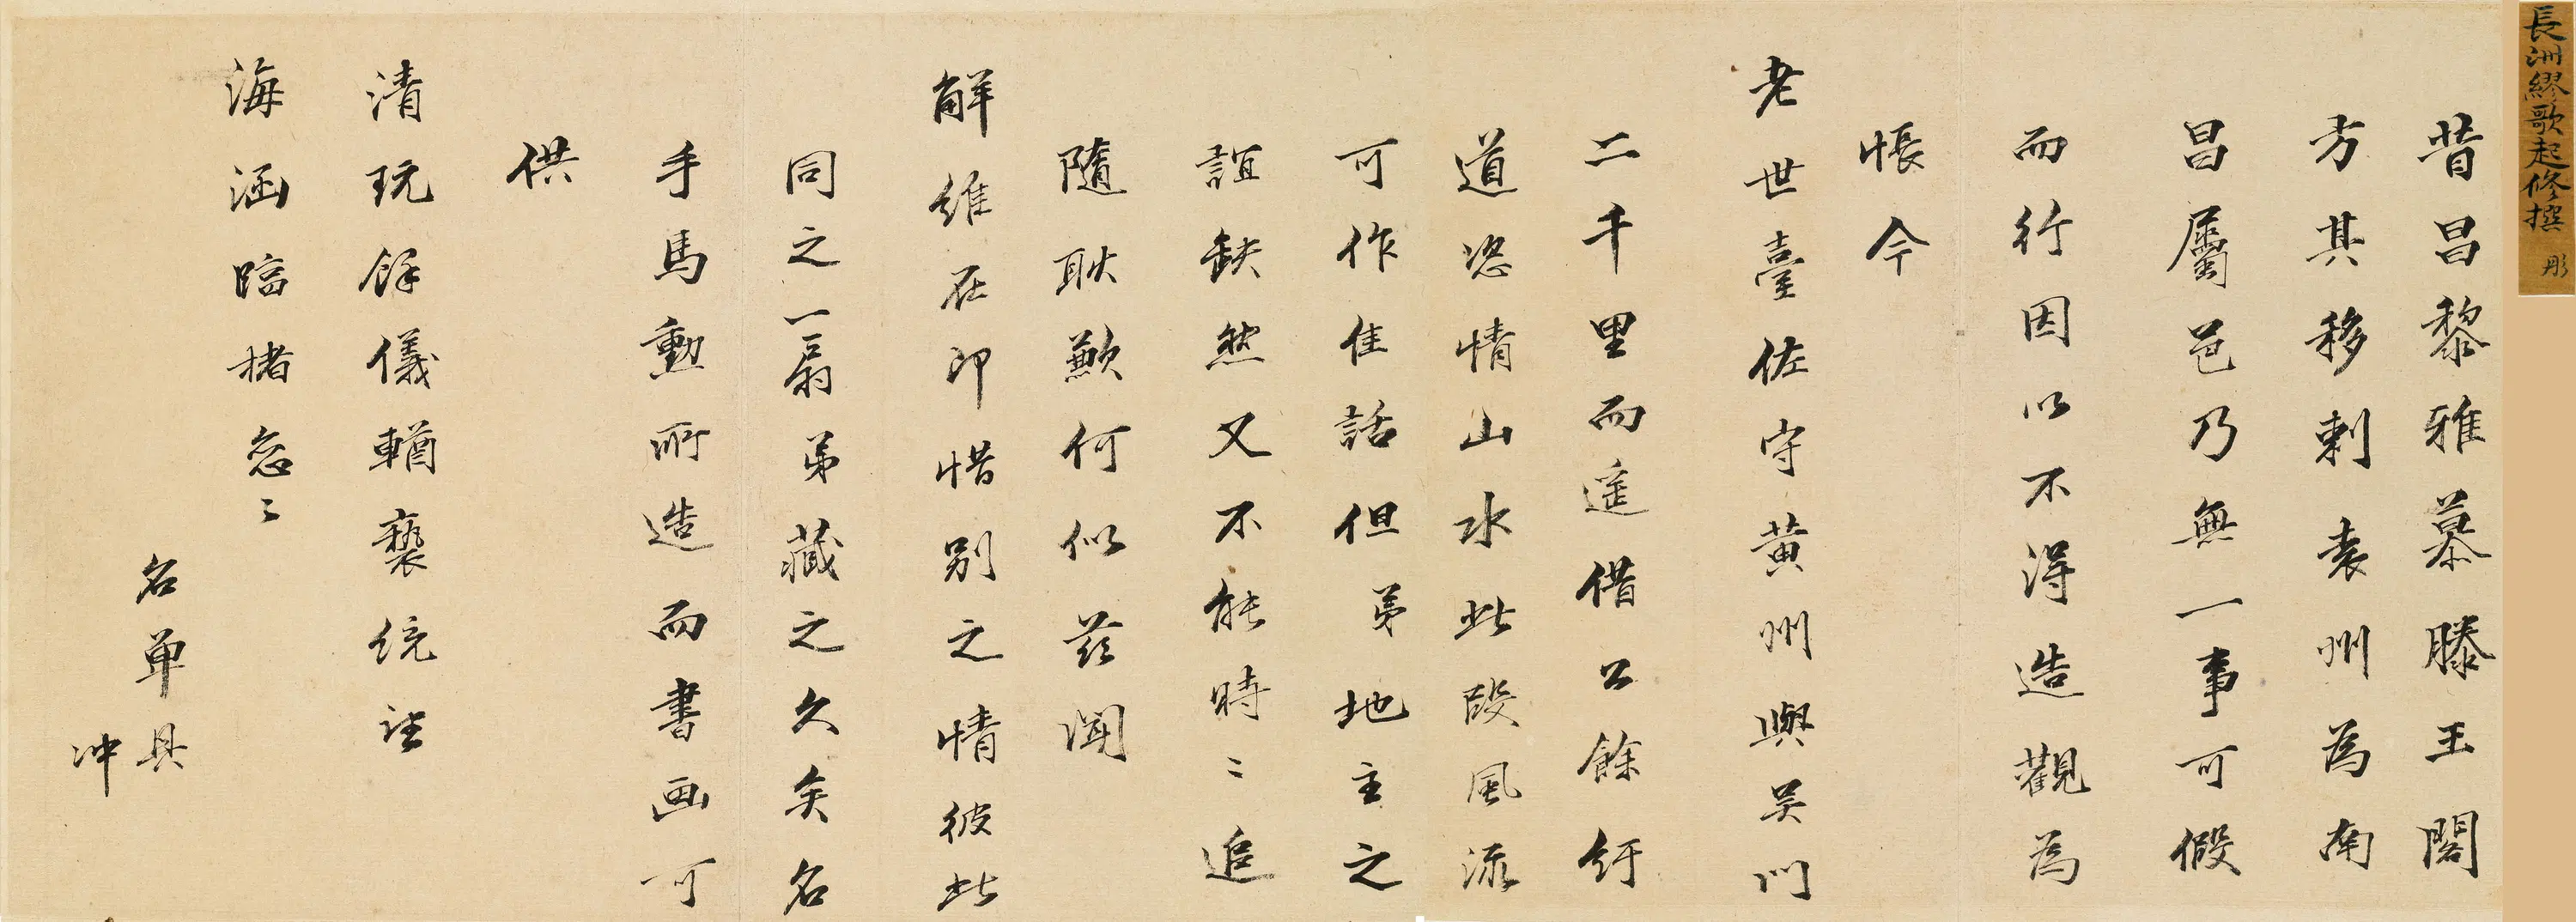 長洲繆歌起修撰 彤
昔昌黎雅慕滕王閣
方其移刺袁州為南
昌屬邑乃無一事可假
而行因以不得造觀為
悵今
老世臺佐守黃州與吳門
二千里而遥借公餘紆
道恣情山水此段風流
可作佳話但弟地主之
誼缺然又不能時〻追
隨耿歉何似茲聞
解維在即惜別之情彼此
同之一扇弟藏之久矣名
手馬勳所造而書画可
供
清玩餘儀輶褻統祈
海涵臨楮念〻
名單具
冲